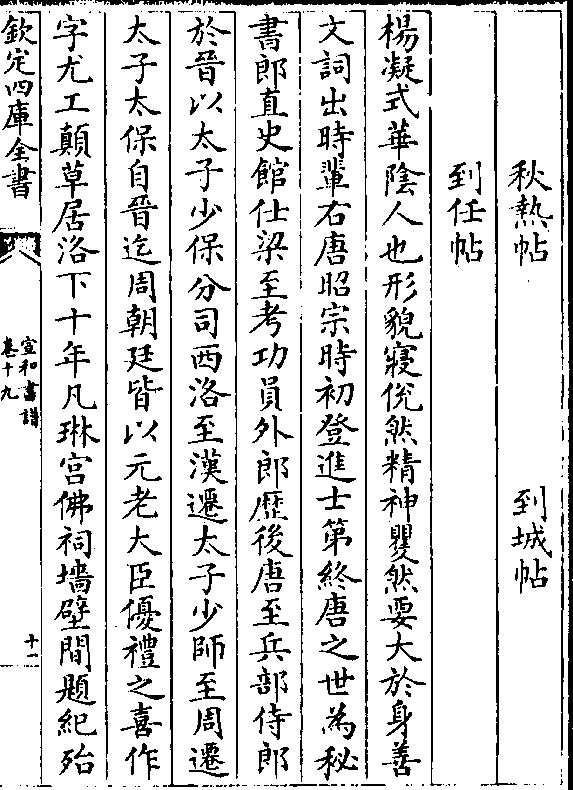 秋熱帖　到城帖
到任帖
楊凝式華陰人也形貌寢侻然精神矍然要大於身善
文詞出時輩右唐昭宗時初登進士第終唐之世為秘
書郎直史館仕梁至考功員外郎歴後唐至兵部侍郎
於晉以太子少保分司西洛至漢遷太子少師至周遷
太子太保自晉迄周朝廷皆以元老大臣優禮之喜作
字尤工顛草居洛下十年凡琳宫佛祠墻壁間題紀殆
欽定四庫全書
宣和書譜
卷十九
十一